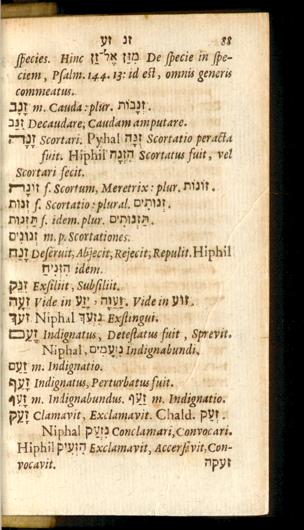 זנ זע 88
species. Hinc מִזַן אֶל־זַן De specie in spe-
ciem, Psalm. 144. 13: id est, omnis generis
commeatus.
זָנָב m. Cauda: plur. זְנָבוֹת.
זִנֵּב Decaudare, Caudam amputare.
זָנָה Scortari. Pyhal זֻנָּה Scortatio peracta
fuit. Hiphil הִזְנָה Scortatus fuit, vel
Scortari fecit.
זוֹנָה f. Scortum, Meretrix: plur. זוֹנוֹת.
זְנוּת f. Scortatio: plural. זְנוּתִים.
תַּזְנוּת f. idem. plur. תַּזְנוּתִים.
זְנוּנִים m. p. Scortationes.
זָנַח Deseruit, Abjecit, Rejecit, Repulit. Hiphil
הִזְנִיחַ idem.
זִנֵּק Exsiliit, Subsiliit.
זָעָה Vide in יָזַע, זַעֲוָה. Vide in זוּע.
זָעַךְ Niphal נִזְעַךְ Exstingui.
זָעַם Indignatus, Detestatus fuit, Sprevit.
Niphal, נִזְעָמִים Indignabundi.
זַעַם m. Indignatio.
זָעַף Indignatus, Perturbatus fuit.
זָעֵף m. Indignabundus. זַעַף m. Indignatio.
זָעַק Clamavit, Exclamavit. Chald. זְעִק.
Niphal נִזְעַק Conclamari, Convocari.
Hiphil הִזְעִיק Exclamavit, Accersivit, Con-
vocavit. זעקה